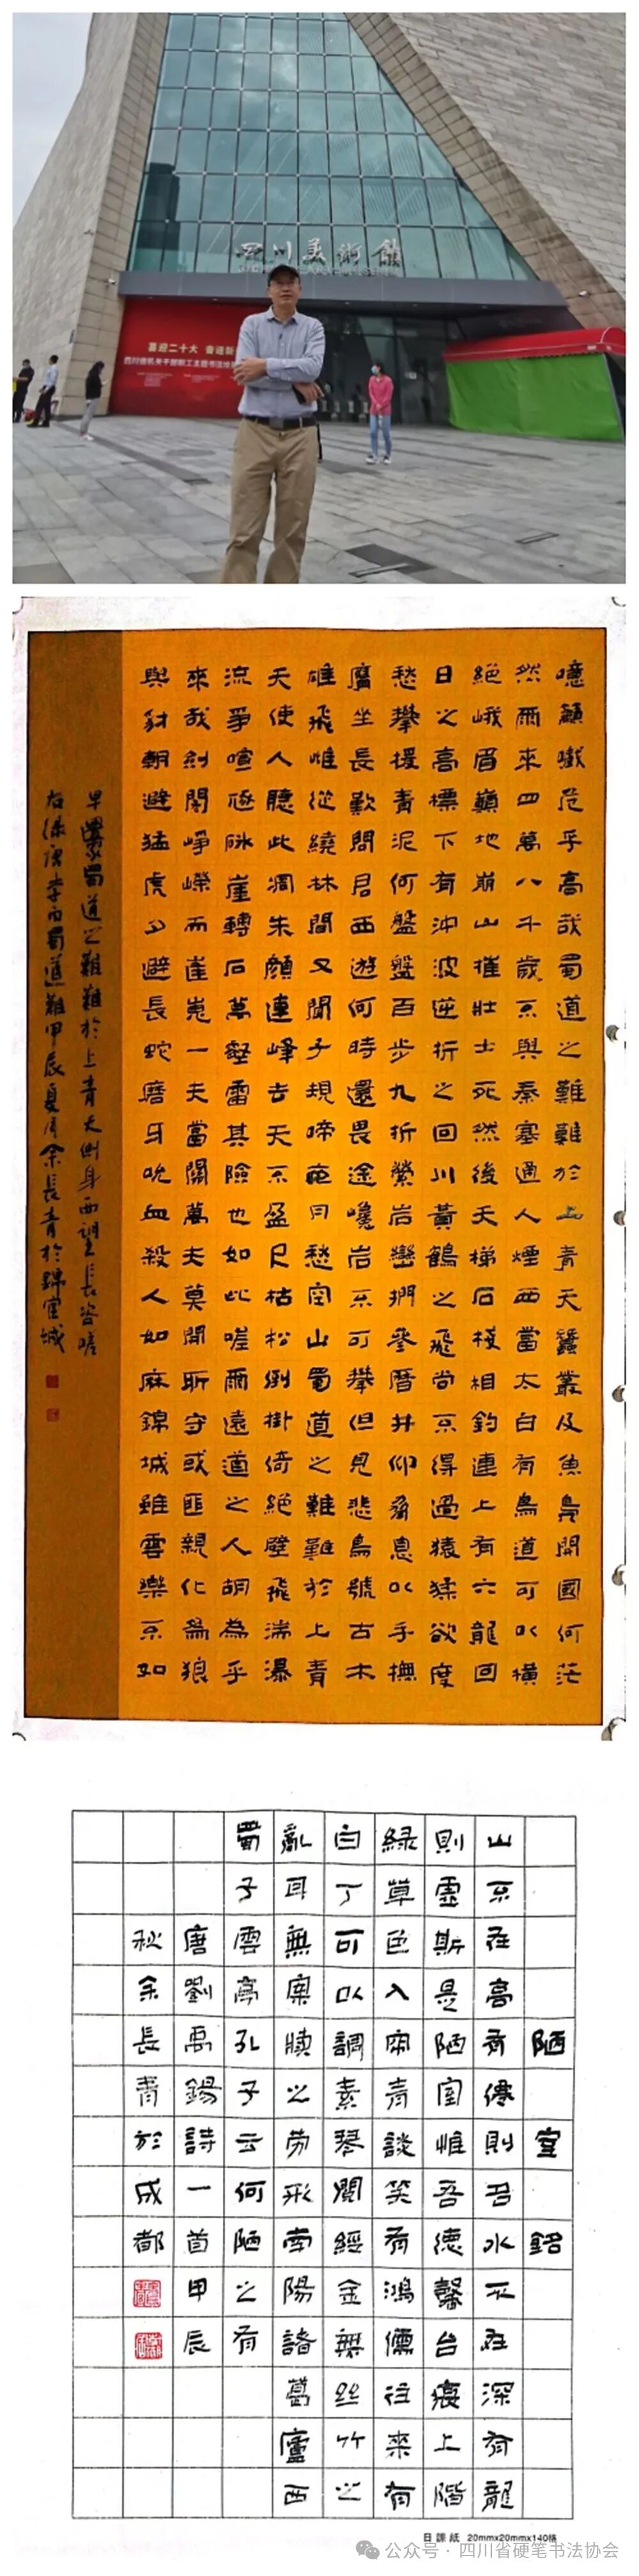 四川美術館
喜迎二十大 奋进新
四川省机关干部职工主题书法绘
噫籲嚱危乎高哉蜀道之難難於上青天蠶叢及魚鳧開國何茫
然爾來四萬八千歲不與秦塞通人煙西當太白有鳥道可以橫
絕峨眉巔地崩山摧壯士死然後天梯石棧相鈎連上有六龍回
日之高標下有沖波逆折之回川黃鶴之飛尚不得過猿猱欲度
愁攀援青泥何盤盤百步九折縈岩巒捫參歷井仰脅息以手撫
膺坐長歎問君西遊何時還畏途巉岩不可攀但見悲鳥號古木
雄飛雌從繞林間又聞子規啼夜月愁空山蜀道之難難於上青
天使人聽此凋朱顏連峰去天不盈尺枯松倒掛倚絕壁飛湍瀑
流爭喧豗砯崖轉石萬壑雷其險也如此嗟爾遠道之人胡為乎
來哉劍閣崢嶸而崔嵬一夫當關萬夫莫開所守或匪親化為狼
與豺朝避猛虎夕避長蛇磨牙吮血殺人如麻錦城雖雲樂不如
早還家蜀道之難難於上青天側身西望長咨嗟
右錄唐李白蜀道難甲辰夏月余長青於錦官城
陋室銘
山不在高有僊則名水不在深有龍
則靈斯是陋室惟吾德馨苔痕上階
綠草色入簾青談笑有鴻儒往來有
白丁可以調素琴閱經金無絲竹之
亂耳無案牘之勞形南陽諸葛廬西
蜀子雲亭孔子云何陋之有
唐劉禹錫詩一首甲辰
秋余長青於成都
日課紙 20mmx20mmx140格
公众号 · 四川省硬笔书法协会